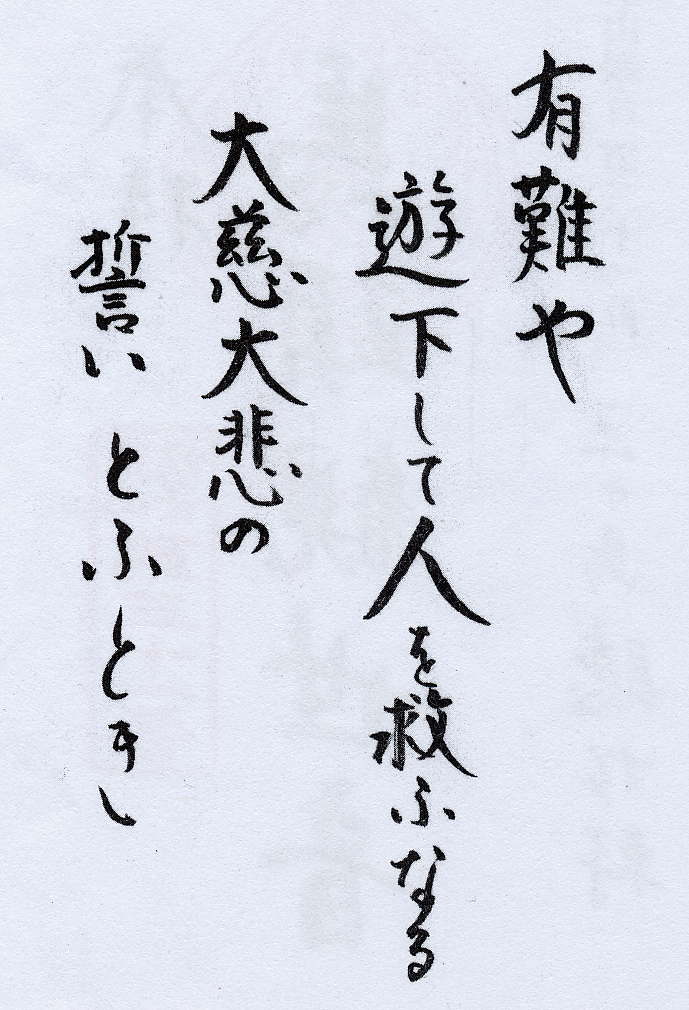 有難や
遊下して人を救ふなる
大慈大悲の
誓いとふときし